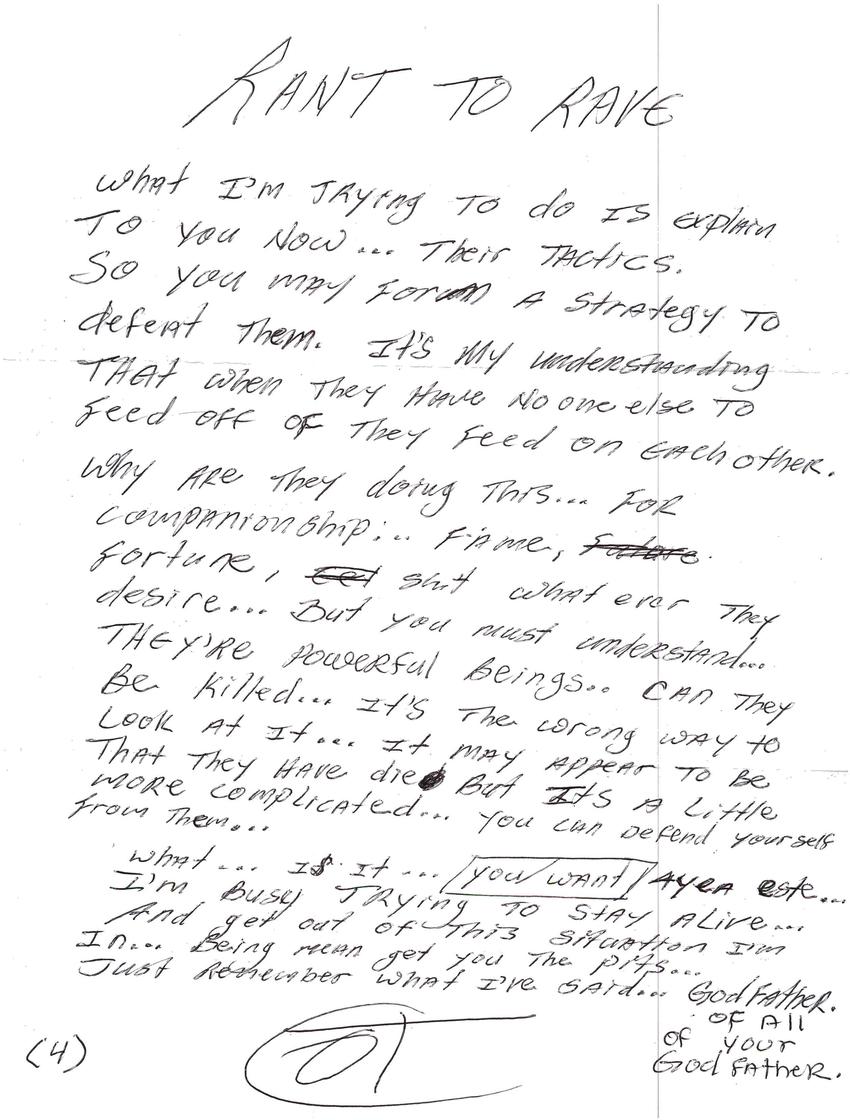 RANT TO RAVE
What I'm TRying To do Is explain
To you Now... Their TACTICS.
So you may Form A Strategy To
defeat Them. It's My understanding
THAT when They Have No one else To
Feed off of They Feed on Each other.
Why Are They doing This... For
companionship... Fame,
Fortune, shit what ever They
desire... But you must understand...
THEY'RE POWERFul Beings.. CAN They
Be Killed... It's The wrong way to
Look At It... It may Appear To Be
That They Have died But Its A Little
More complicated... You can Defend yourself
From Them...
What... Is It... you want este...
I'm Busy TRying To Stay Alive...
And get out of This Situation I'm
In... Being mean get you The pits...
Just Remember what I've SAID... GodFather.
OF All
OF your
GodFather.
(4)